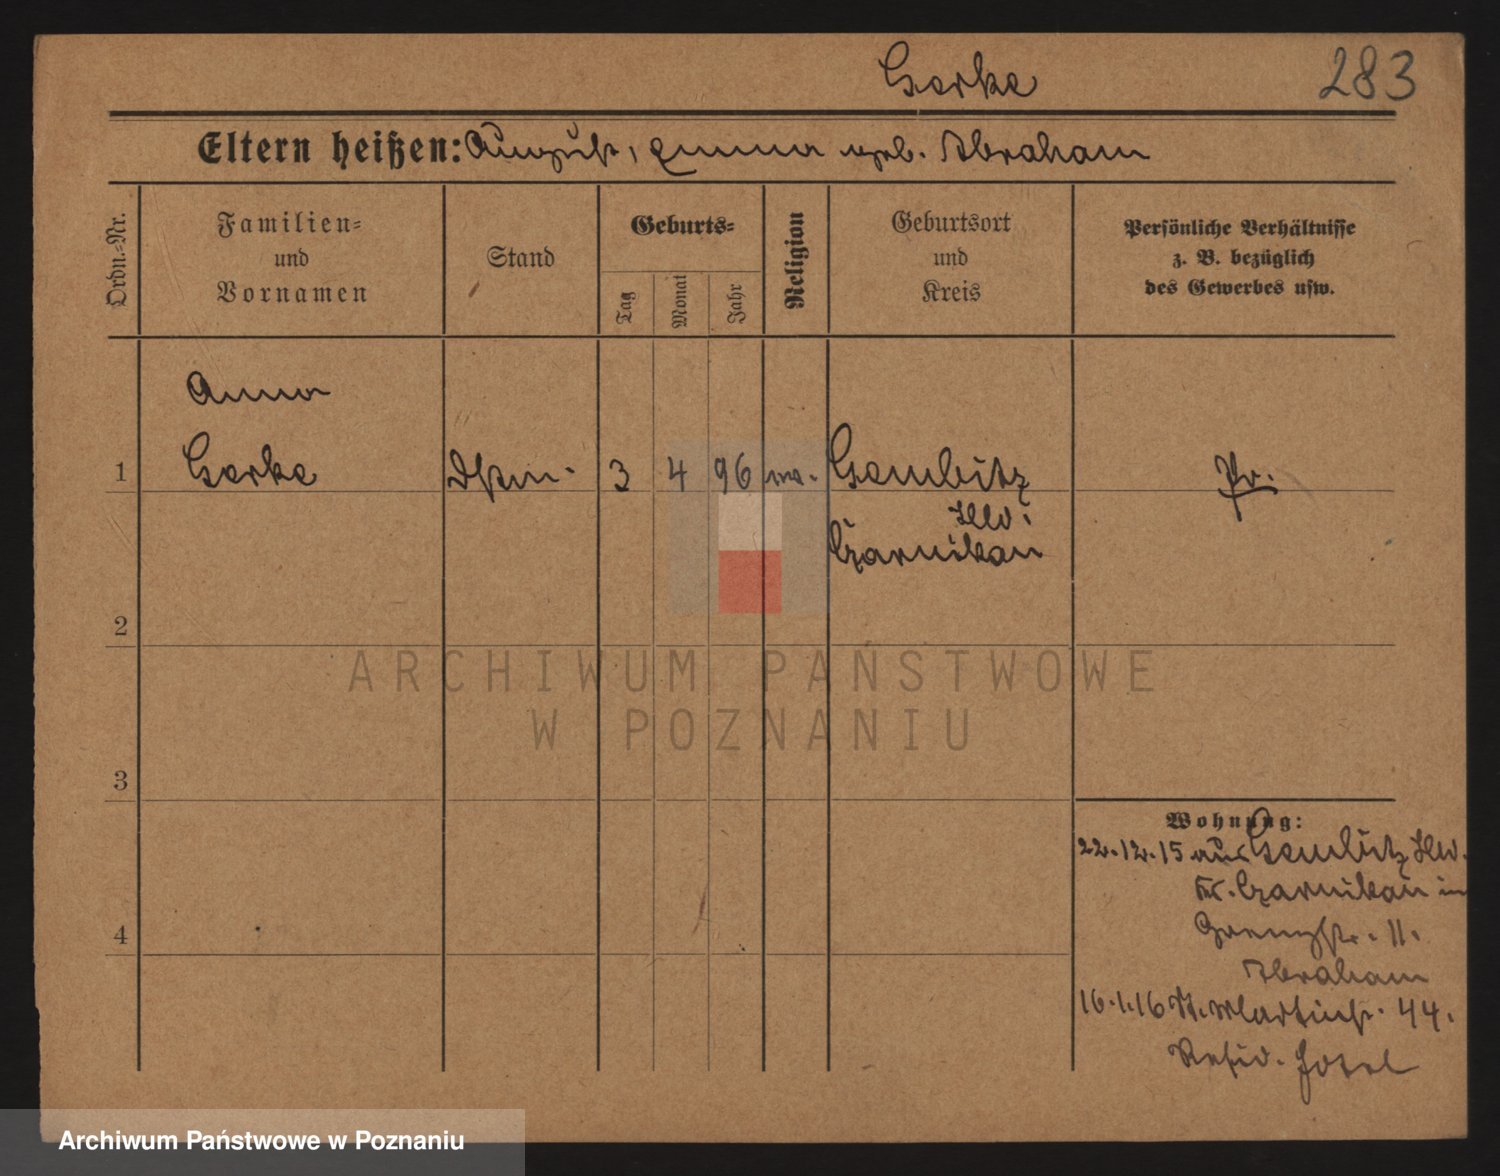 Gerke
283
Eltern heißen: August, Emma geb. Abraham
Ordn.-Nr.
Familien- und Vornamen
Stand
Geburts-
Tag
Monat
Jahr
Religion
Geburtsort und Kreis
Persönliche Verhältnisse z. B. bezüglich des Gewerbes usw.
Anna
1 Gerke
3 4 96
Gembitz
Hld.
Czarnikau
Pr.
2
3
4
Wohnung:
22.12.15 aus Gembitz Hld.
Kr. Czarnikau in
Grenzstr. 11.
Abraham
16.1.16 St. Martinstr. 44.
Resid. Hotel
ARCHIWUM PAŃSTWOWE
W POZNANIU
Archiwum Państwowe w Poznaniu